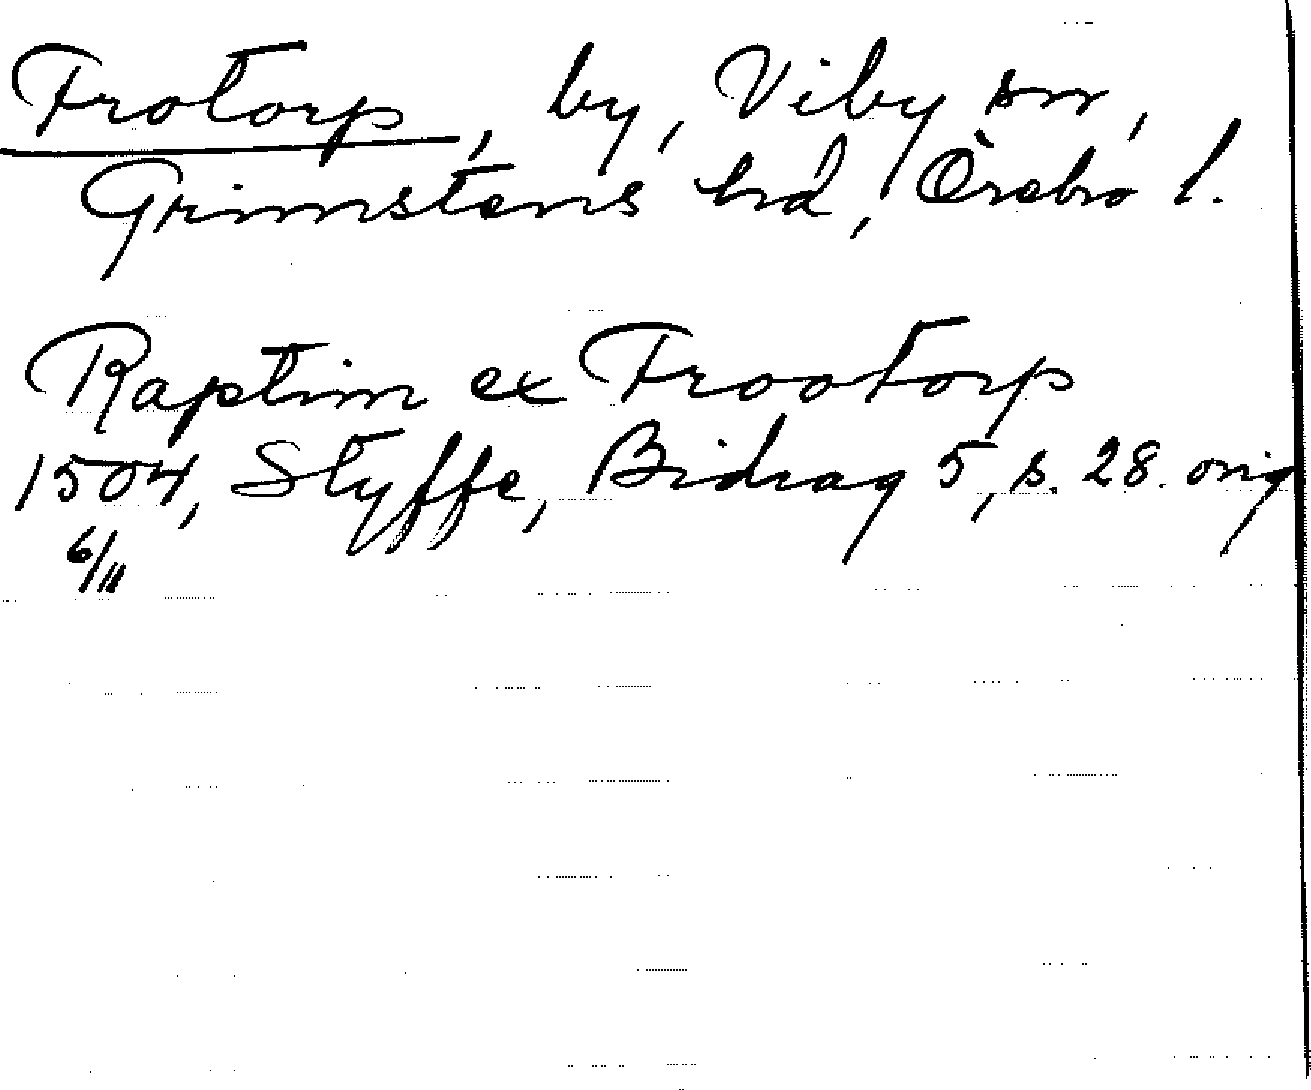 Frotorp, by, Viby sn,
Grimstens hd, Örebro l.
Raptim ex Frootorp
1504, Styffe, Bidrag 5, s. 28. orig
6/11